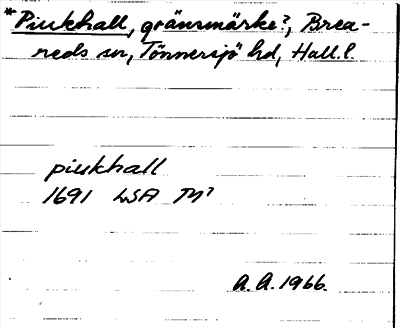 *Piukhall, gränsmärke?, Brea-
reds sn, Tönnersjö hd, Hall.l.
piukhall
1691 LSA
A.A. 1966.